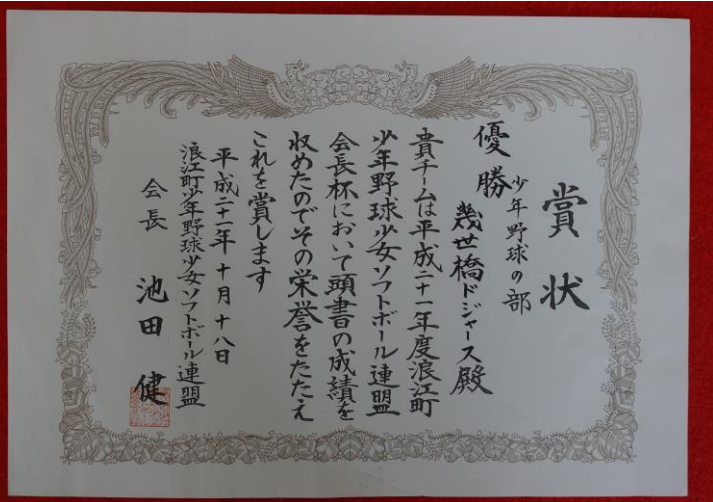 賞状
少年野球の部
優勝
幾世橋ドジャース殿
貴チームは平成二十一年度浪江町
少年野球少女ソフトボール連盟
会長杯において頭書の成績を
収めたのでその栄誉をたたえ
これを賞します
平成二十一年十月十八日
浪江町少年野球少女ソフトボール連盟
会長 池田健